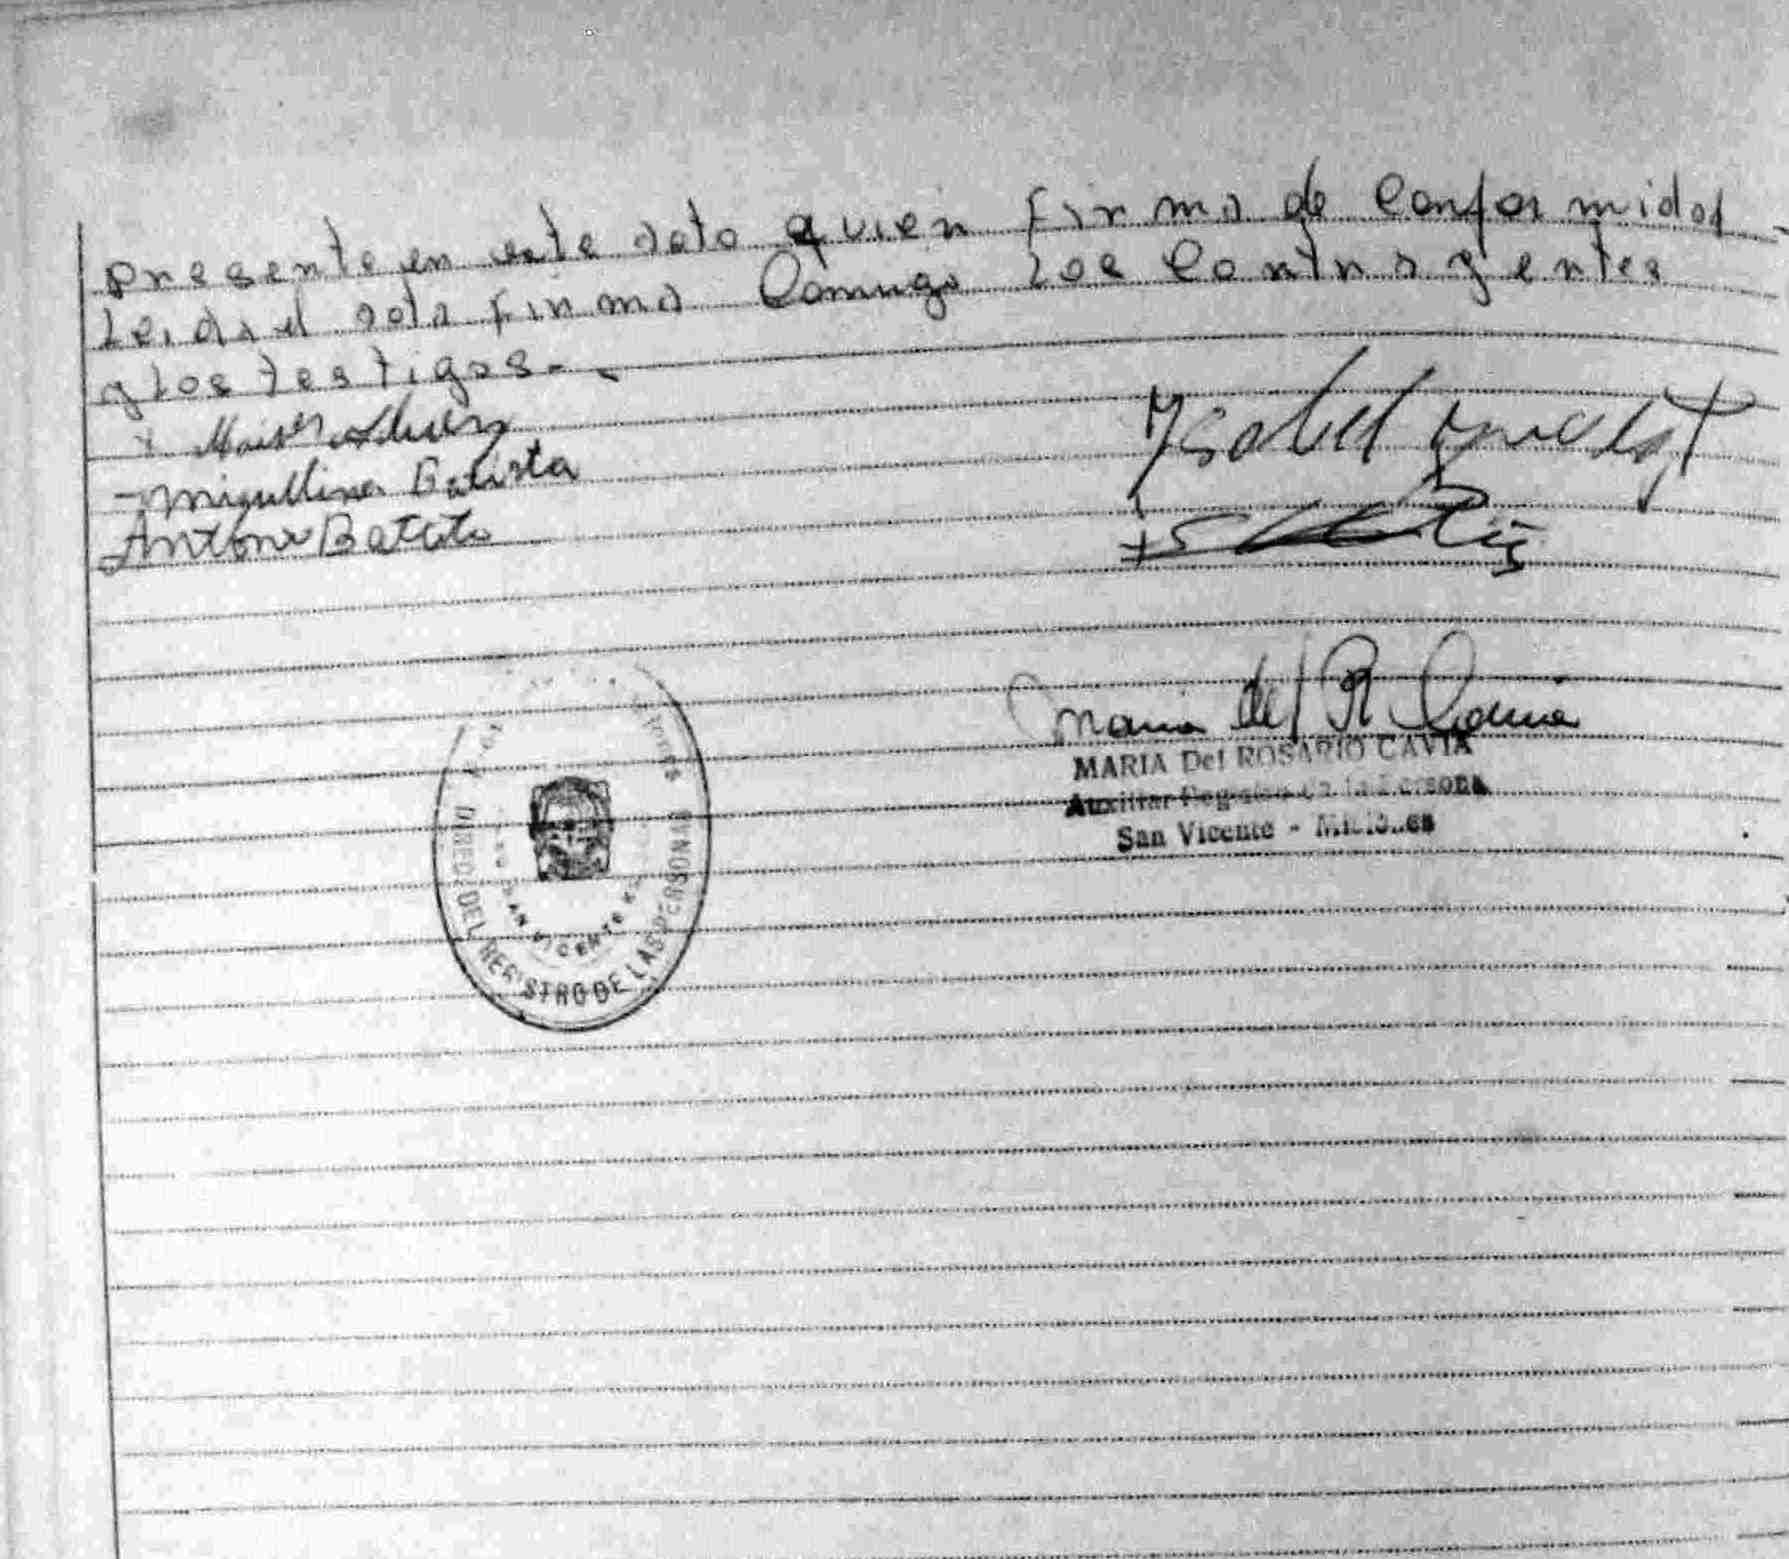 presente en este acto quien firma de conformidad
Leida el acta firma Conmigo Los Contrayentes
y los testigos.-
Miguelina Batista
Antonio Batista
Isabel
Maria del R Cavia
MARIA Del ROSARIO CAVIA
Auxiliar
San Vicente - Misiones
DIREC. DEL REGISTRO DE LAS PERSONAS
SAN VICENTE